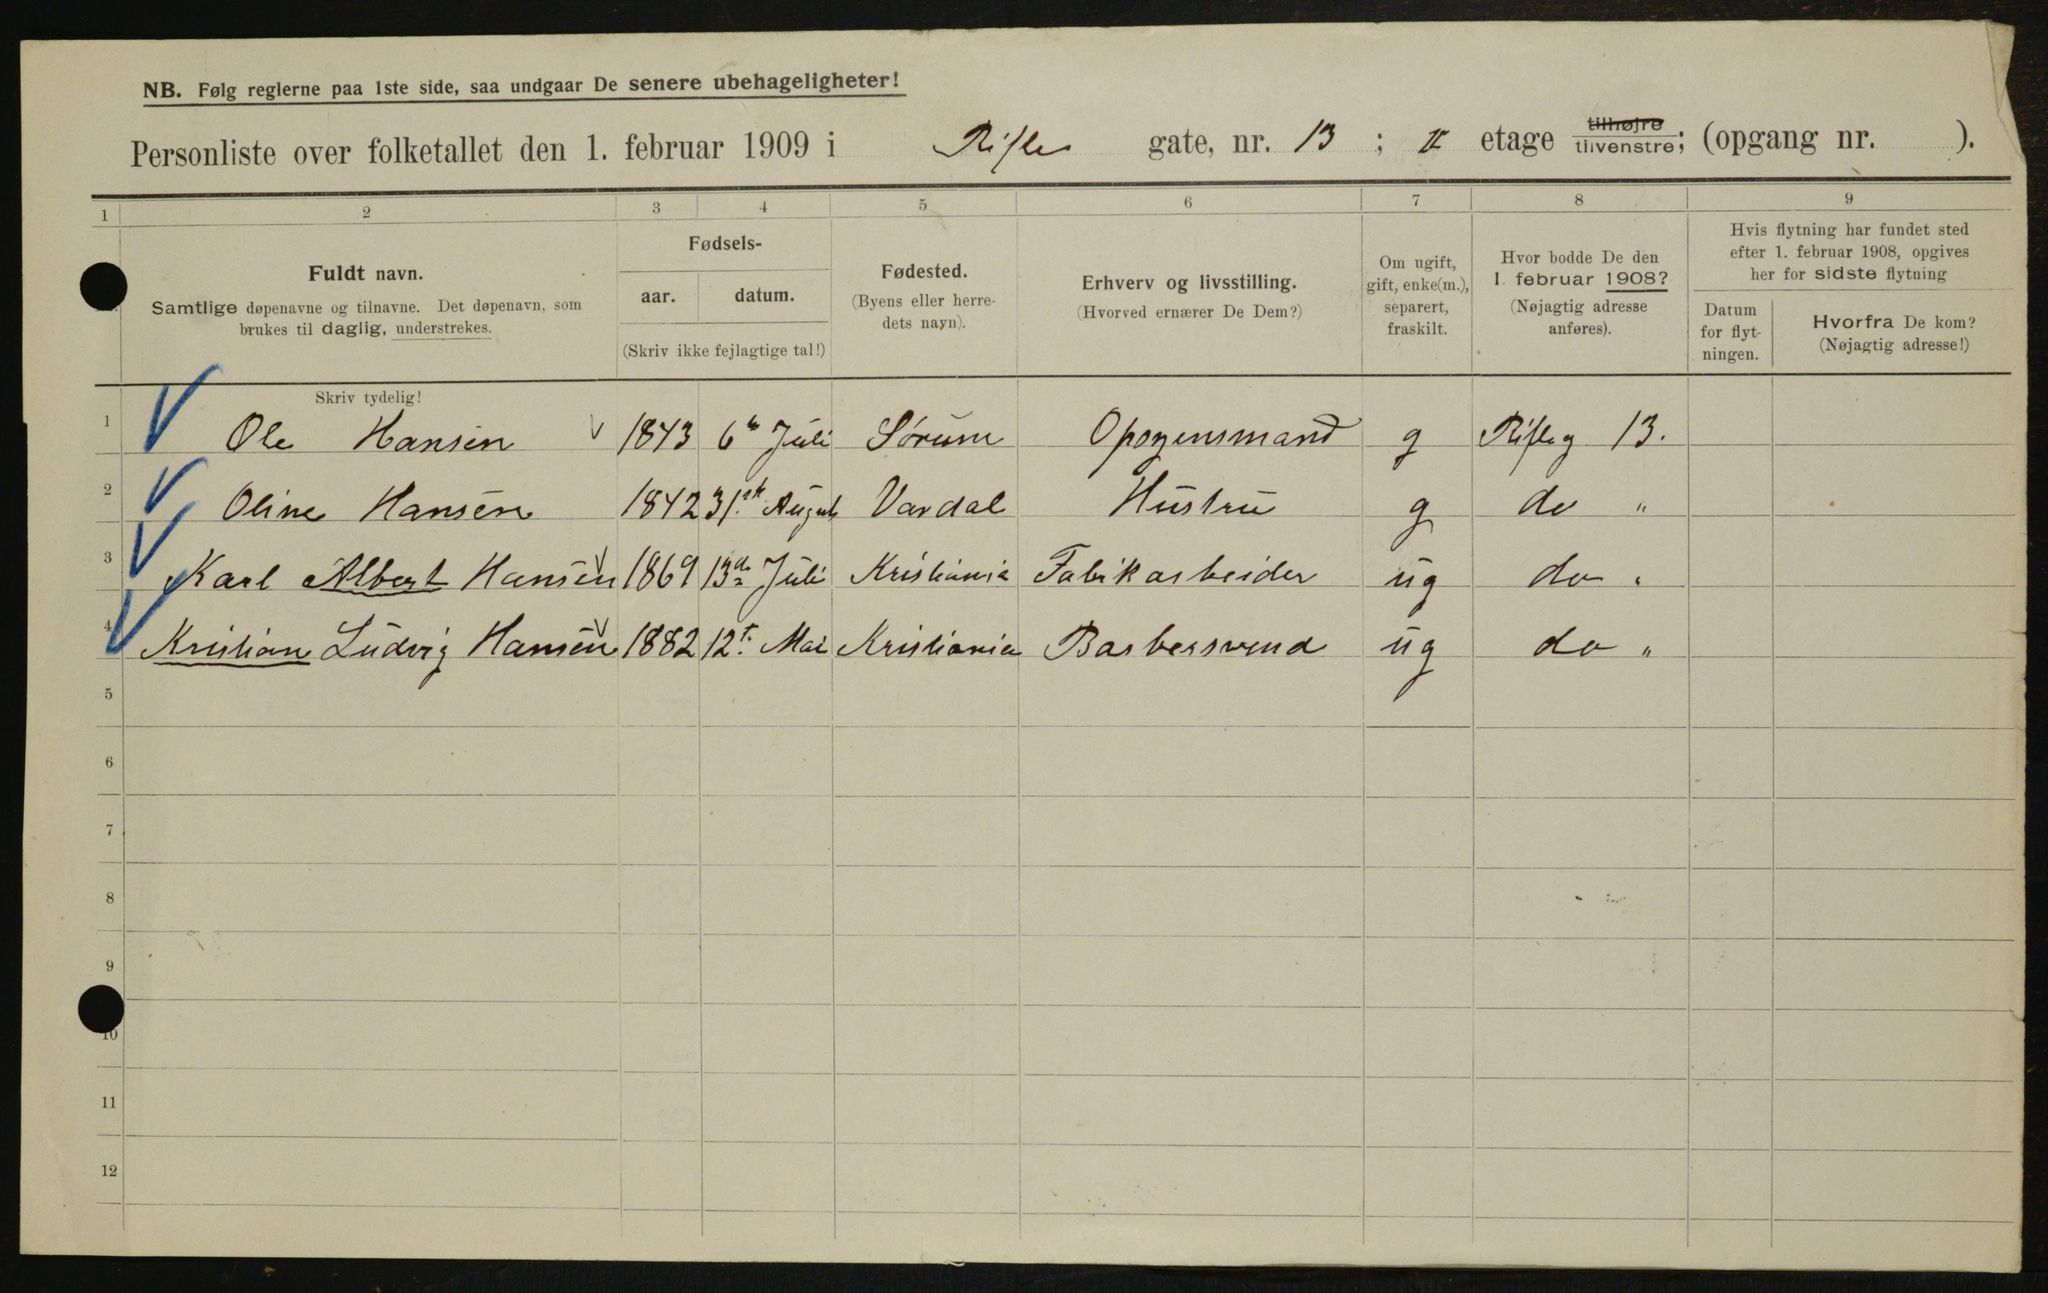 NB. Følg reglerne paa 1ste side, saa undgaar De senere ubehageligheter!
Personliste over folketallet den 1. februar 1909 i Rifle gate, nr. 13; II etage tilhøjre tilvenstre; (opgang nr. ).
1 2 3 4 5 6 7 8 9
Fuldt navn.
Samtlige døpenavne og tilnavne. Det døpenavn, som
brukes til daglig, understrekes.
Skriv tydelig!
Fødsels-
aar. datum.
(Skriv ikke fejlagtige tal!)
Fødested.
(Byens eller herre-
dets navn).
Erhverv og livsstilling.
(Hvorved ernærer De Dem?)
Om ugift,
gift, enke(m.),
separert,
fraskilt.
Hvor bodde De den
1. februar 1908?
(Nøjagtig adresse
anføres).
Hvis flytning har fundet sted
efter 1. februar 1908, opgives
her for sidste flytning
Datum
for flyt-
ningen.
Hvorfra De kom?
(Nøjagtig adresse!)
1 Ole Hansen 1843 6te Juli Sørum Opsynsmand g Rifleg 13.
2 Oline Hansen 1842 31te August Vardal Hustru g do "
3 Karl Albert Hansen 1869 13de Juli Kristiania Fabrikarbeider ug do "
4 Kristian Ludvig Hansen 1882 12t. Mai Kristiania Barbersvend ug do "
5
6
7
8
9
10
11
12